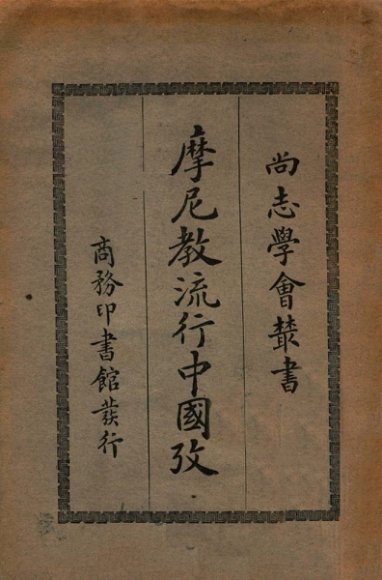 尚志學會叢書
摩尼教流行中國攷
商務印書館發行